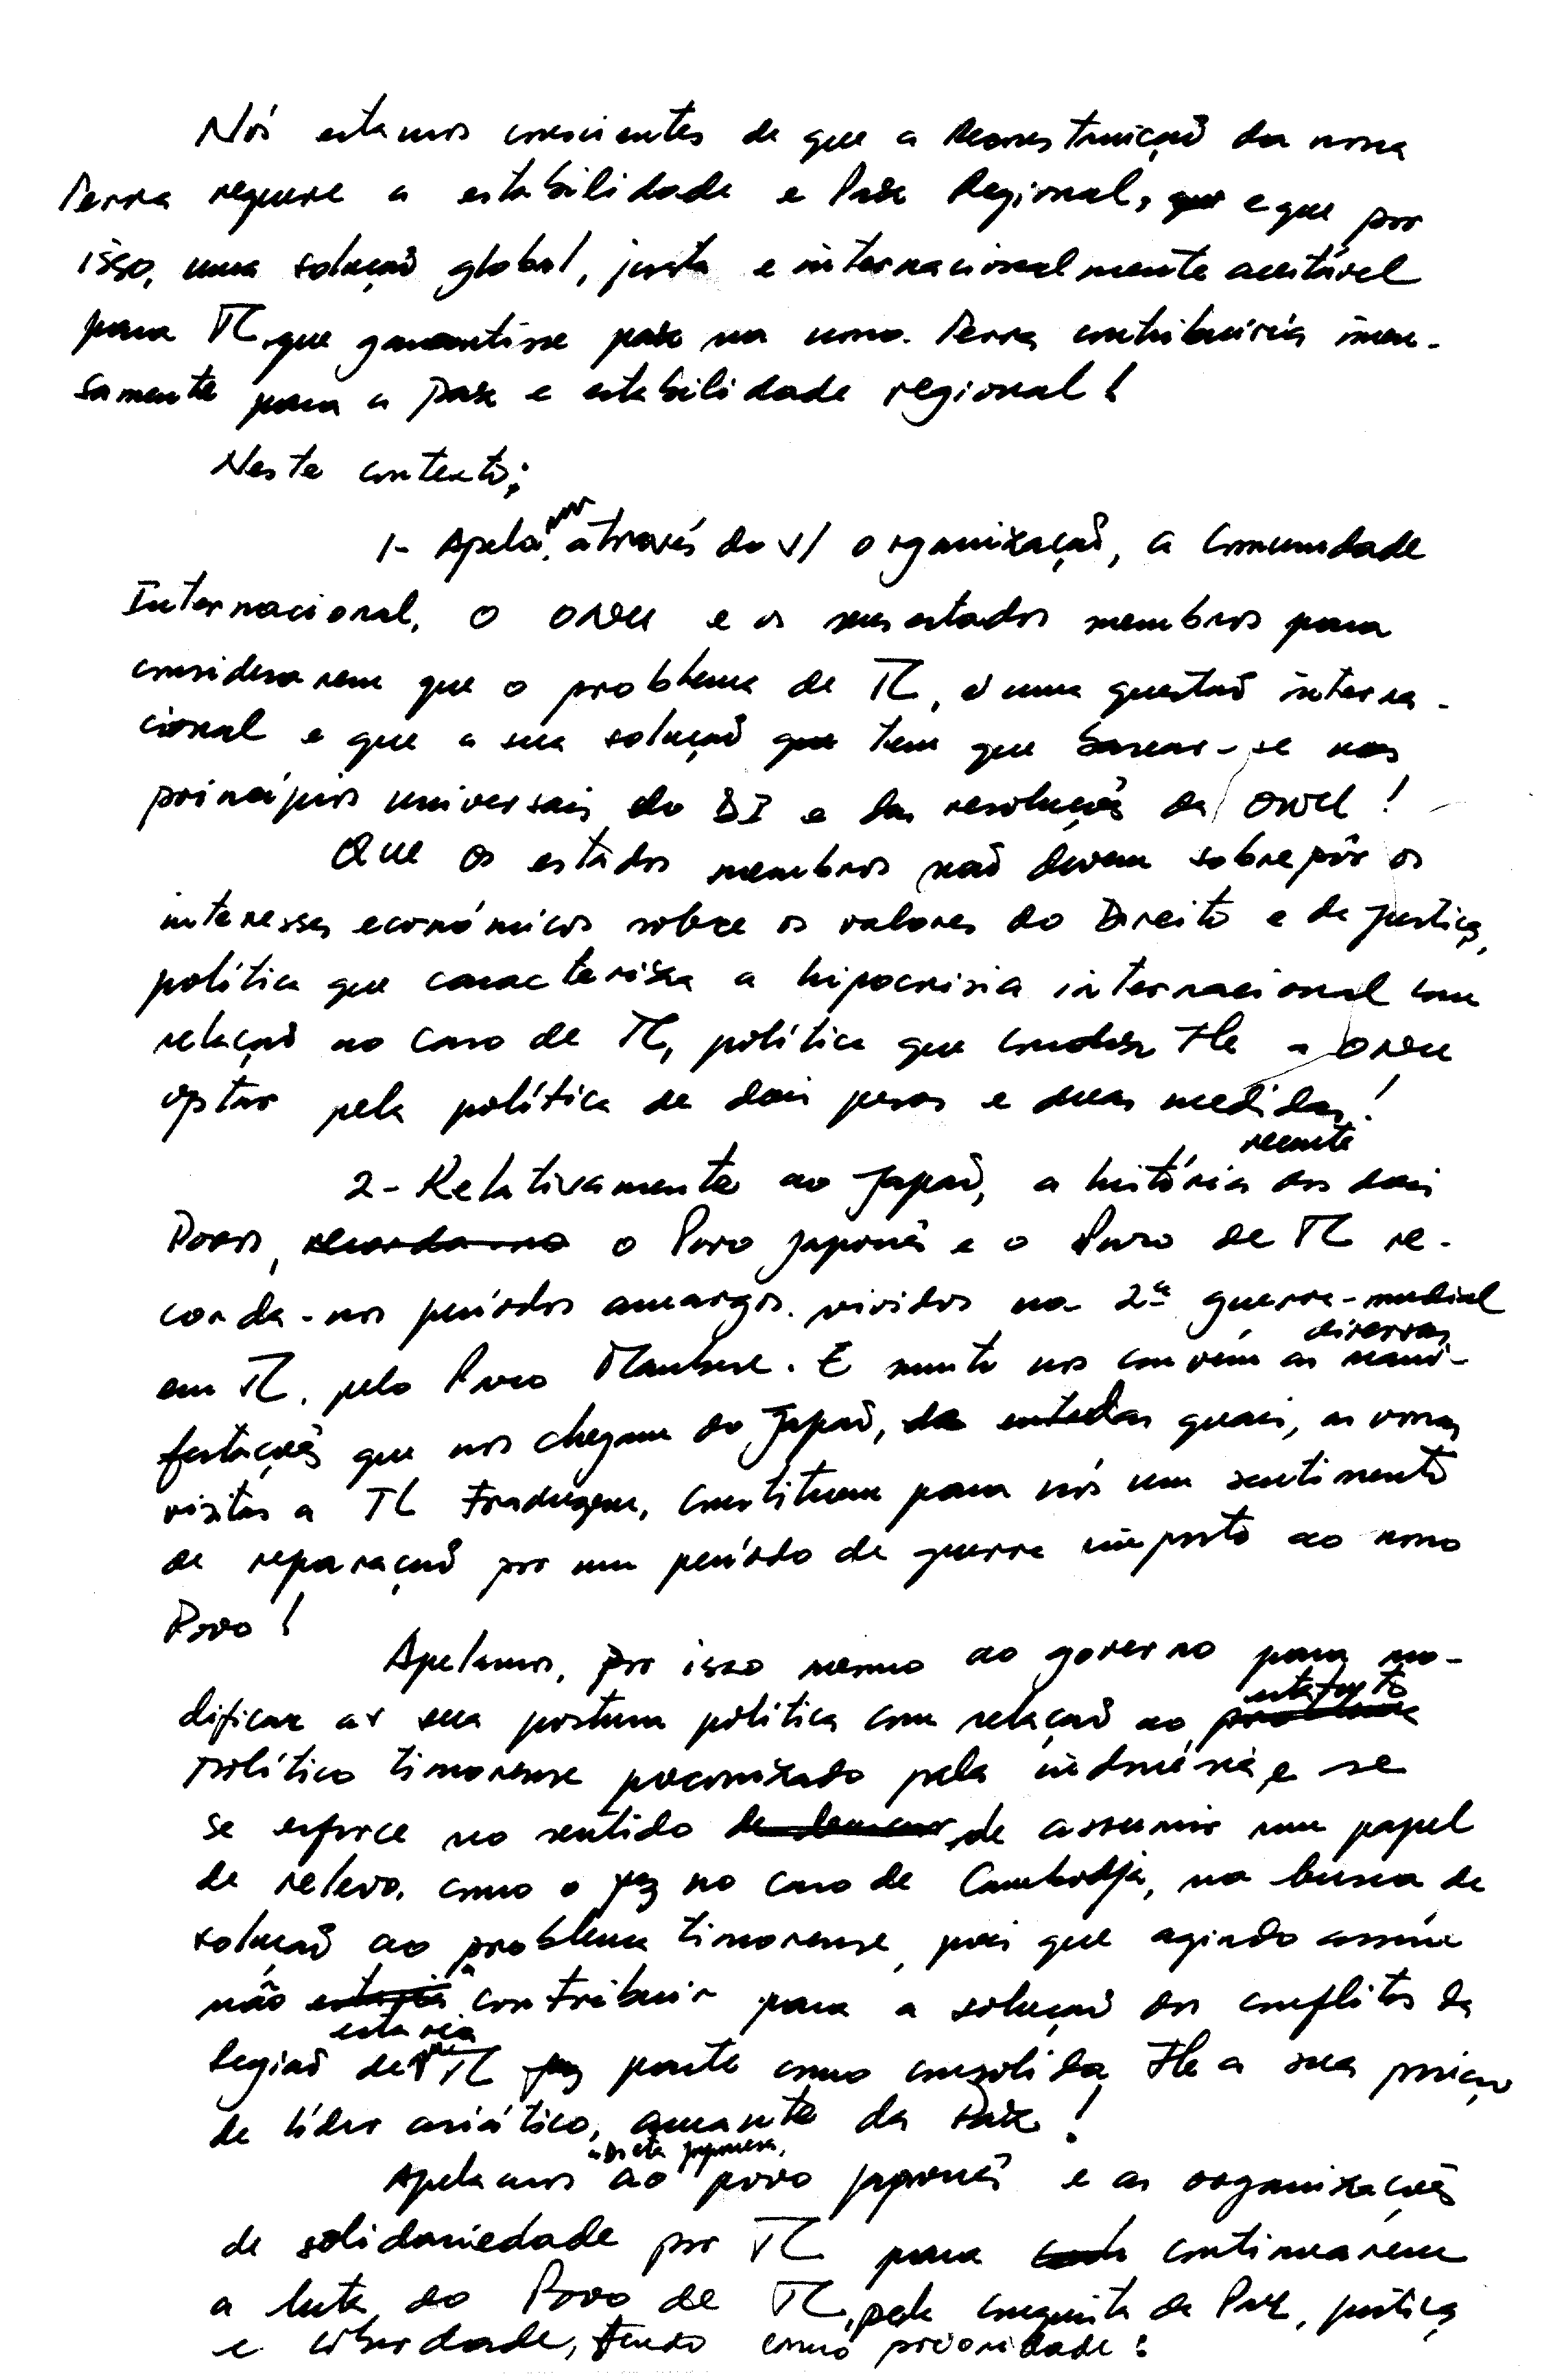 Nós estamos conscientes de que a Reconstrução da nossa
Terra requere a estabilidade e Paz Regional, que e que por
isso, uma solução global, justa e internacionalmente aceitável
para TL que garantisse paz na nossa Terra contribuiria imen-
samente para a paz e estabilidade regional!
Neste contexto;
1- Apelamos, através da V/ organização, a Comunidade
Internacional, o ONU e os seus estados membros para
considerarem que o problema de TL, é uma questão interna-
cional e que a sua solução que tem que basear-se nos
princípios universais do DI e das resoluções da ONU!
Que os estados membros não devem sobrepôr os
interesses económicos sobre os valores do Direito e da Justiça,
política que caracteriza a hipocrisia internacional com
relação ao caso de TL, política que conduz-lhe a ONU
optar pela política de dois pesos e duas medidas!
2- Relativamente ao Japão, a história recente dos dois
Povos, recorda-nos o Povo Japonês e o Povo de TL re-
corda-nos períodos amargos vividos na 2ª guerra-mundial
em TL, pelo Povo Maubere. E muito nos convém as diversas mani-
festações que nos chegam do Japão, das quais, as vossas
visitas a TL traduzem, constituem para nós um sentimento
de reparação por um período de guerra imposto ao nosso
Povo!
Apelamos, por isso mesmo ao governo para mo-
dificar a sua postura política com relação ao problema estatuto
político timorense preconizado pela indonésia e se
se esforce no sentido de assumir um papel
de relevo, como o fez no caso de Cambodja, na busca de
solução ao problema timorense, pois que agindo assim
não estaria a contribuir para a solução dos conflitos da
Região de que TL faz parte como consolidaria-lhe a sua posição
de líder asiático, amante da Paz!
Apelamos a Dieta japonesa, ao povo japonês e as organizações
de solidariedade por TL para continuarem
a luta do Povo de TL, pela conquista da Paz, justiça
e liberdade, tendo como prioridade: